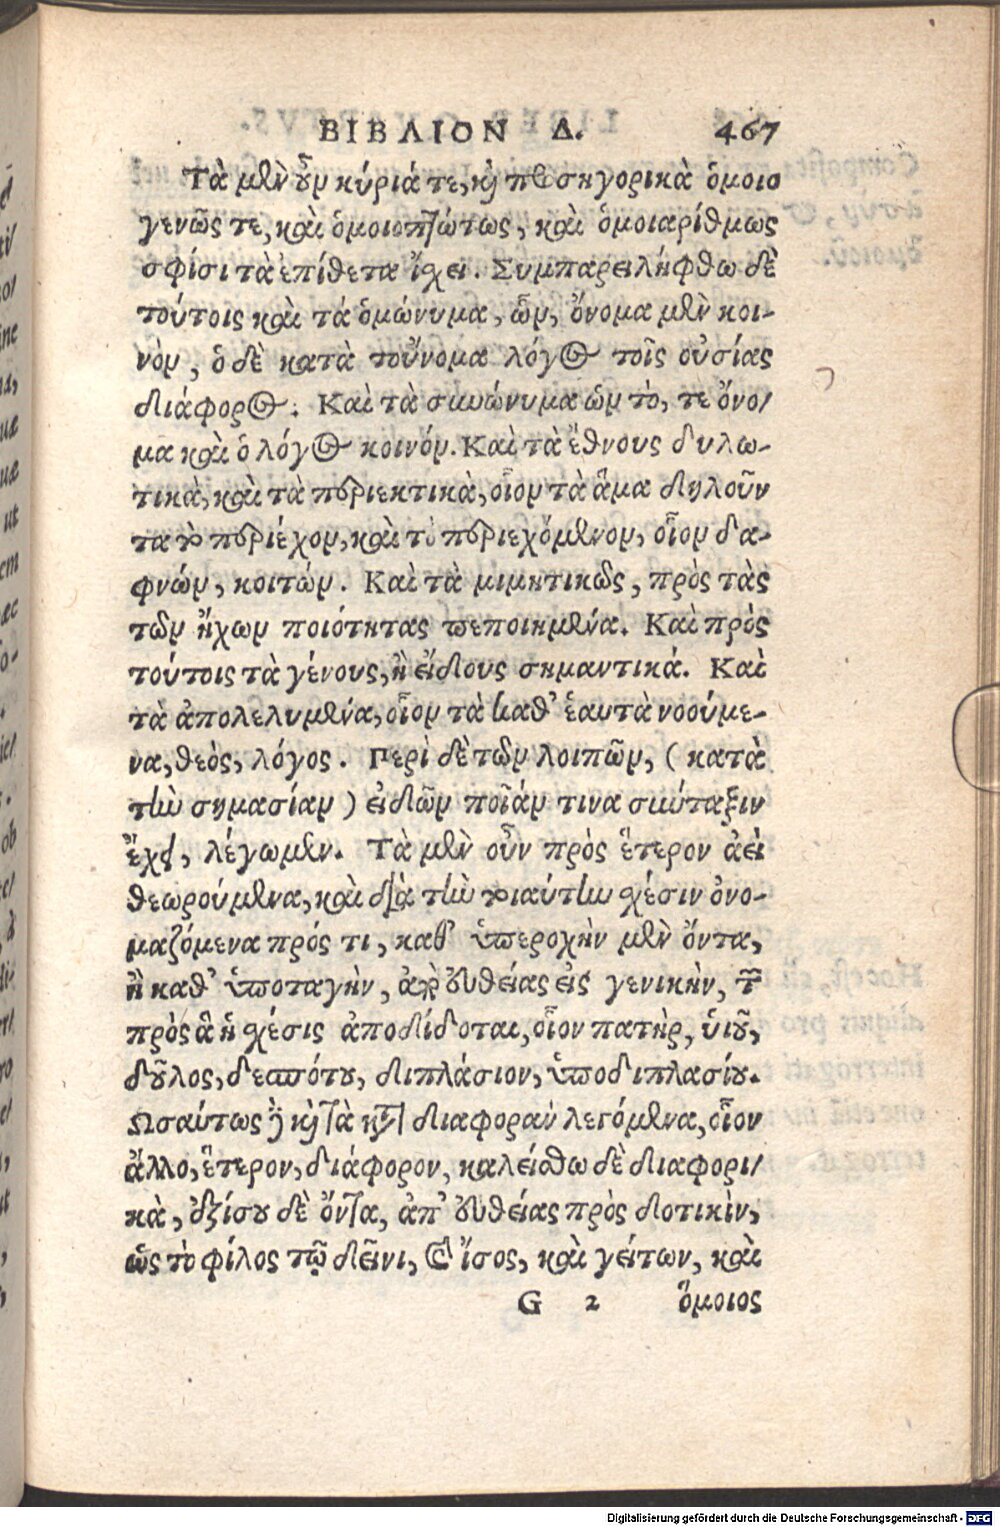 ΒΙΒΛΙΟΝ Δ. 467
Τὰ μὲν οὖν κύριά τε, καὶ προσηγορικὰ ὁμοιο
γενῶς τε, καὶ ὁμοιοπτώτως, καὶ ὁμοιαρίθμως
σφίσι τὰ ἐπίθετα ἴχει. Συμπαρειλήφθω δὲ
τούτοις καὶ τά ὁμώνυμα, ὧν, ὄνομα μὲν κοι-
νὸν, ὁ δὲ κατὰ τοὔνομα λόγος τοῖς οὐσίας
διάφορος. Καὶ τὰ συνώνυμα ὧν τὸ, τε ὄνο/
μα καὶ ὁ λόγος κοινόν. Καὶ τὰ ἔθνους δυλω-
τικὰ, καὶ τὰ περιεκτικὰ, οἷον τὰ ἅμα δηλοῦν
τα τὸ περιέχον, καὶ τὸ περιεχόμενον, οἷον δα-
φνών, κοιτών. Καὶ τὰ μιμητικῶς, πρὸς τὰς
τῶν ἤχων ποιότητας πεποιημένα. Καὶ πρὸς
τούτοις τὰ γένους, ἢ εἴδους σημαντικά. Καὶ
τὰ ἀπολελυμένα, οἷον τὰ καθ' ἑαυτὰ νοούμε-
να, θεὸς, λόγος. Περὶ δὲ τῶν λοιπῶν, (κατὰ
τὴν σημασίαν) εἰδῶν ποῖάν τινα σύνταξιν
ἔχει, λέγωμεν. Τὰ μὲν οὖν πρὸς ἕτερον ἀεὶ
θεωρούμενα, καὶ διὰ τὴν τοιαύτην σχέσιν ὀνο-
μαζόμενα πρός τι, καθ' ὑπεροχὴν μὲν ὄντα,
ἢ καθ' ὑποταγὴν, ἀπὸ εὐθείας εἰς γενικὴν,
πρὸς ἃ ἡ σχέσις ἀποδίδοται, οἷον πατὴρ, ὑιοῦ,
δοῦλος, δεσπότου, διπλάσιον, ὑποδιπλασίου.
Ωσαύτως καὶ τὰ κατὰ διαφορὰν λεγόμενα, οἷον
ἄλλο, ἕτερον, διάφορον, καλείσθω δὲ διαφορι/
κὰ, ἐξίσου δὲ ὄντα, ἀπ' εὐθείας πρὸς δοτικὴν,
ὡς τὸ φίλος τῷ δεῖνι, καὶ ἴσος, καὶ γείτων, καὶ
G 2 ὅμοιος
Digitalisierung gefördert durch die Deutsche Forschungsgemeinschaft - DFG